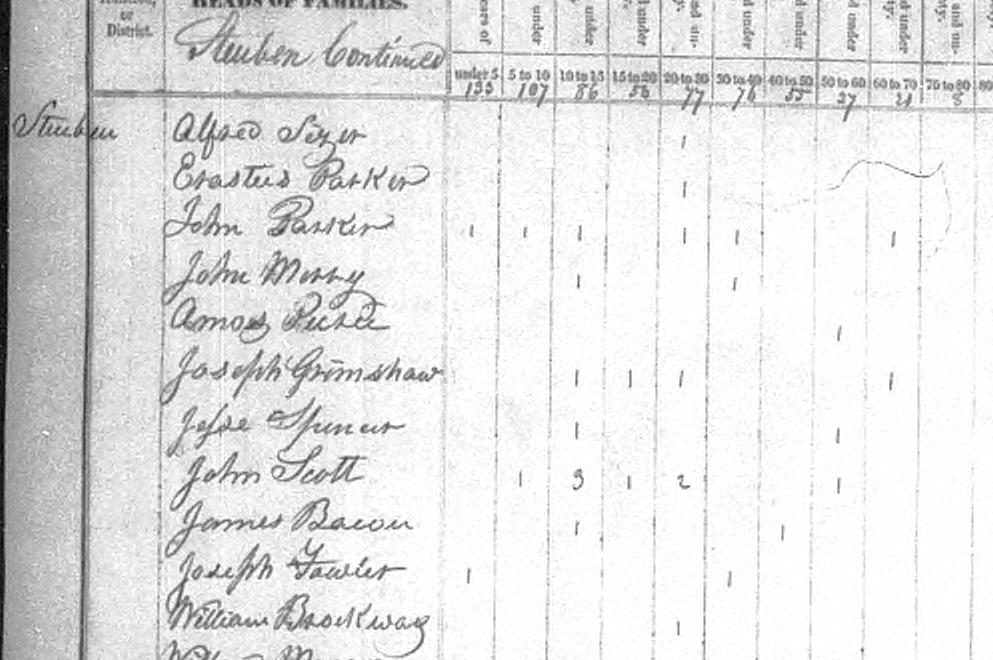 HEADS OF FAMILIES.
District.
or
Steuben Continued
under 5 5 to 10 10 to 15 15 to 20 20 to 30 30 to 40 40 to 50 50 to 60 60 to 70 70 to 80 80
133 107 86 58 77 76 55 27 21 8
Steuben Alfred Sizer 1
Erastus Parker 1
John Parker 1 1 1 1 1 1
John Merry 1 1
Amos 1
Joseph Grimshaw 1 1 1 1
Jesse Spencer 1 1
John Scott 1 3 1 2 1
James Bacon 1 1
Joseph Fowler 1 1
William Brockway 1